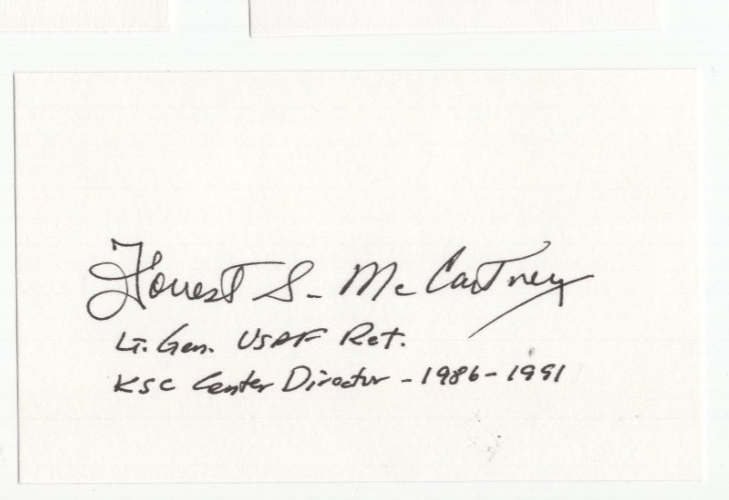 Forrest S. McCartney
Lt. Gen. USAF Ret.
KSC Center Director - 1986-1991